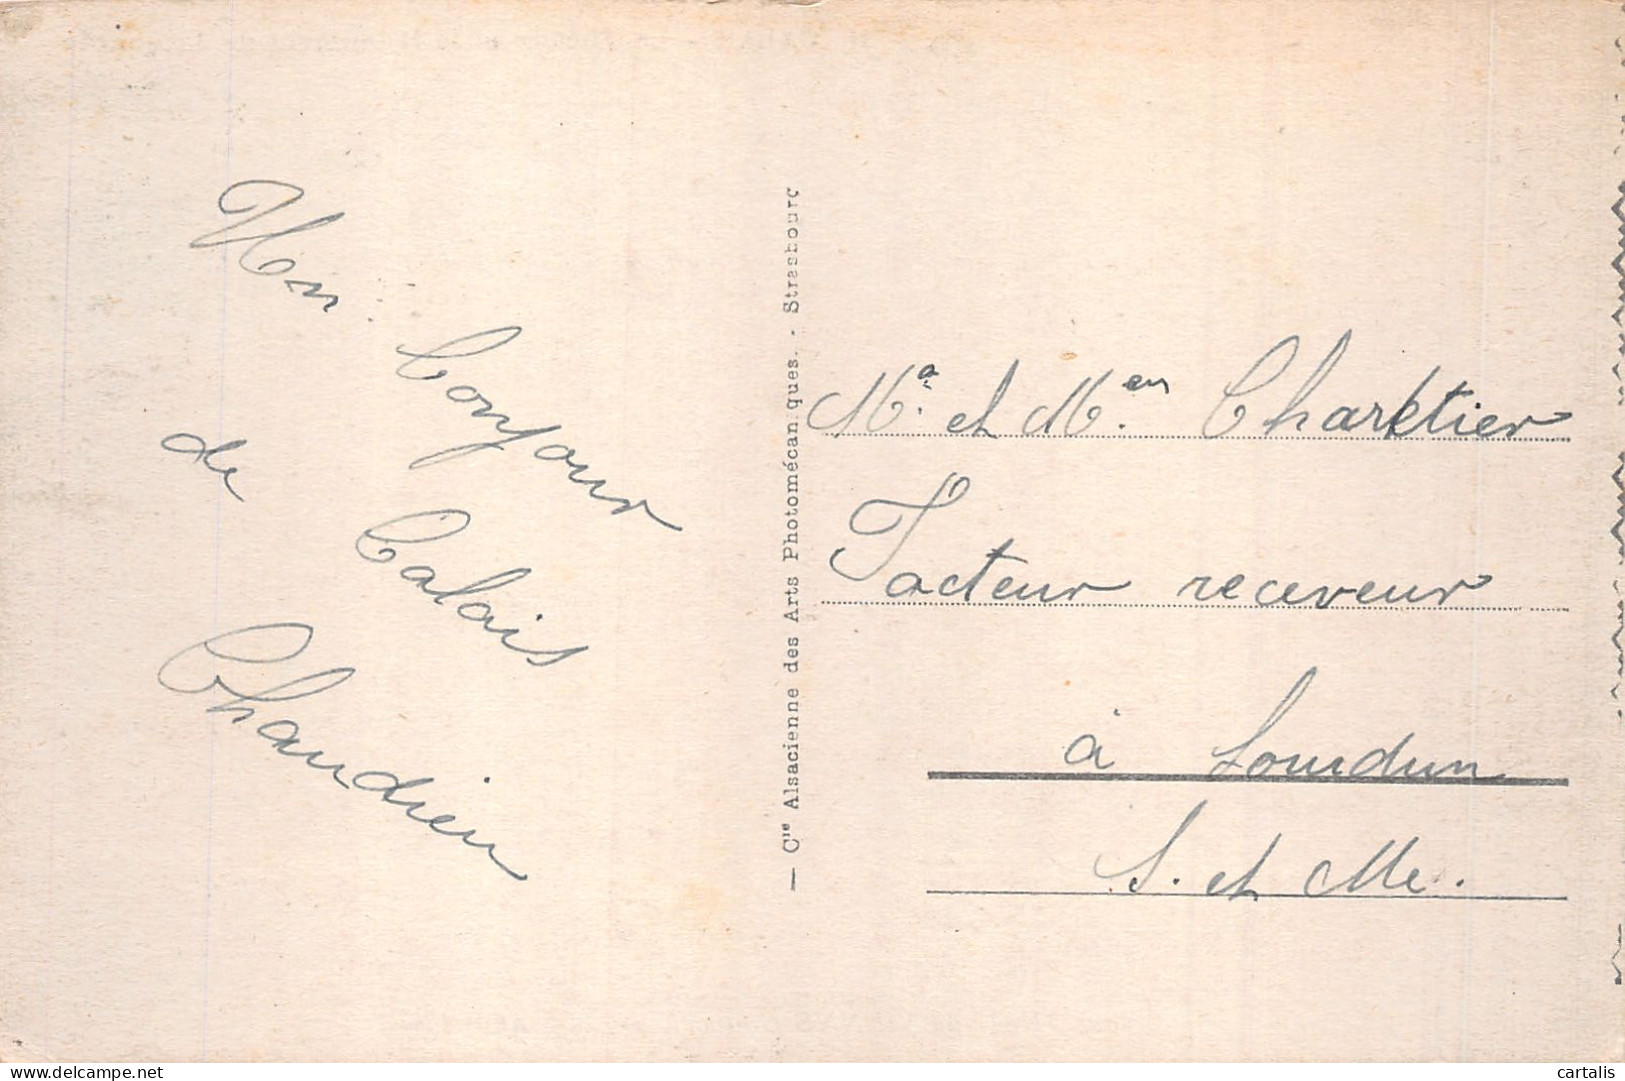 Un bonjour
de Calais
Chaudieu
— Cie Alsacienne des Arts Photomécaniques. - Strasbourg
Mr. et Men. Charktier
Facteur receveur
à Lourdun
S. et Me.
cartalis